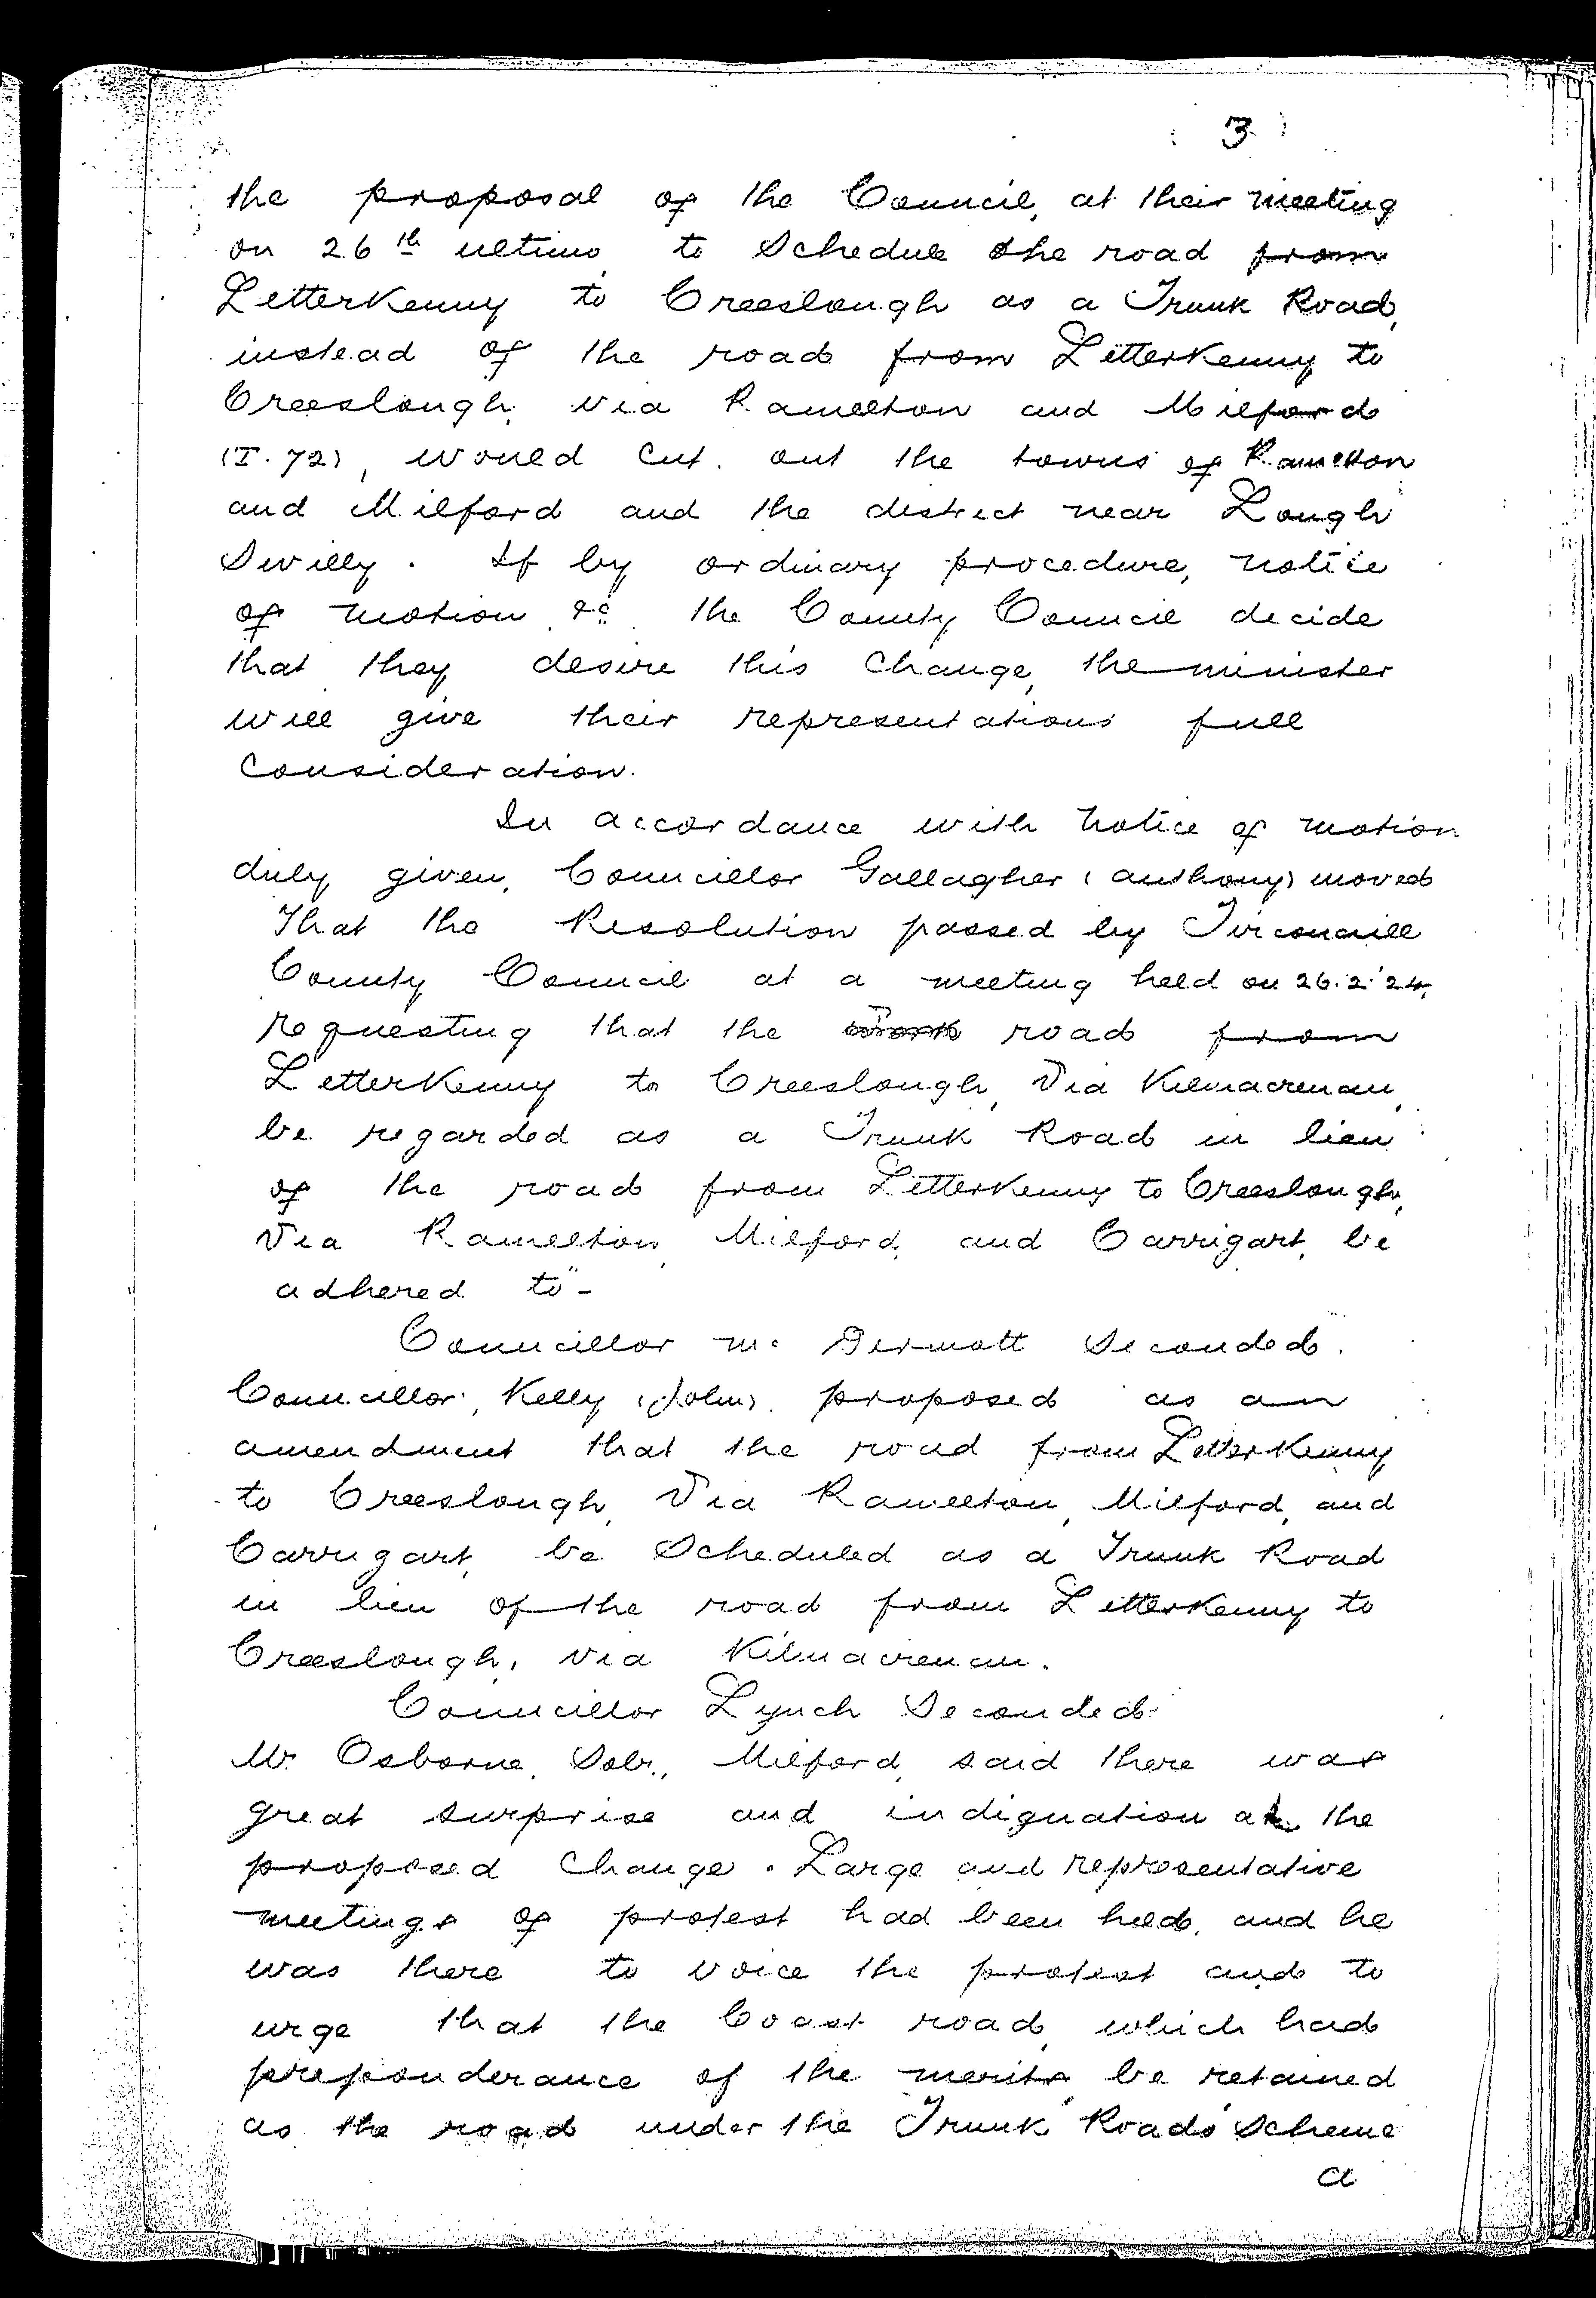 3
the proposal of the Council, at their meeting
on 26th ultimo, to Schedule the road from
Letterkenny to Creeslough as a Trunk Road,
instead of the road from Letterkenny to
Creeslough, via Ramelton and Milford
(T. 72), would cut out the towns of Ramelton
and Milford and the district near Lough
Swilly. If by ordinary procedure, notice
of motion &c, the County Council decide
that they desire this change, the minister
will give their representations full
consideration.
In accordance with notice of motion
duly given, Councillor Gallagher (Anthony) moved
That the Resolution passed by Tirconaill
County Council at a meeting held on 26.2.'24,
requesting that the road from
Letterkenny to Creeslough, Via Kilmacrenan,
be regarded as a Trunk Road in lieu
of the road from Letterkenny to Creeslough,
Via Ramelton, Milford, and Carrigart, be
adhered to"-
Councillor Mc Dermott Seconded.
Councillor, Kelly (John), proposed as an
amendment that the road from Letterkenny
to Creeslough, Via Ramelton, Milford, and
Carrigart, be Scheduled as a Trunk Road
in lieu of the road from Letterkenny to
Creeslough, via Kilmacrenan.
Councillor Lynch Seconded.
Mr. Osborne, Solr., Milford, said there was
great surprise and indignation at the
proposed Change. Large and representative
meetings of protest had been held, and he
was there to voice the protest and to
urge that the Coast road, which had
preponderance of the merits, be retained
as the road under the Trunk Roads Scheme
a